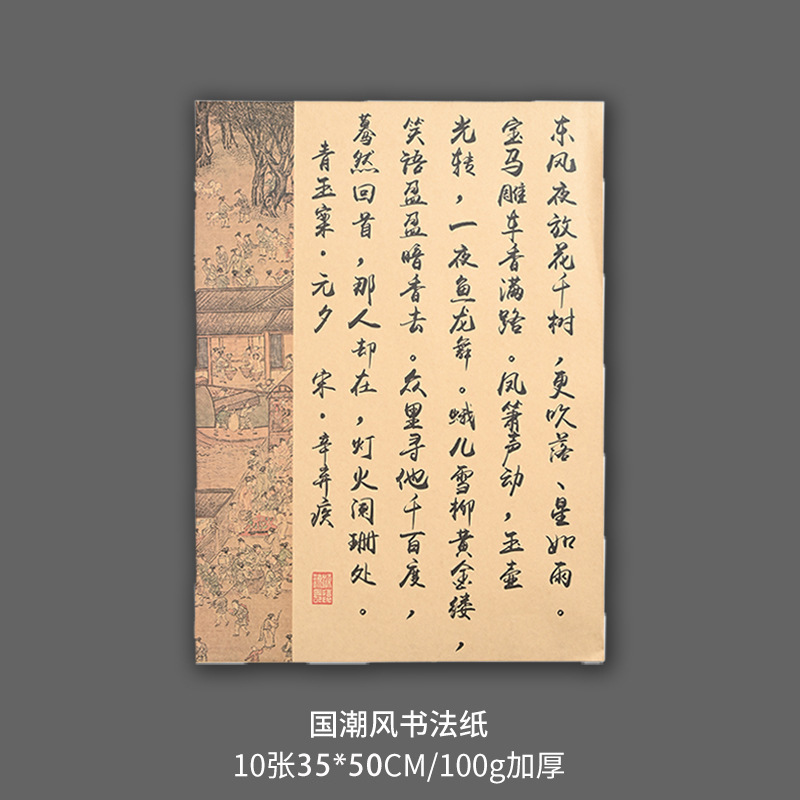 东风夜放花千树，更吹落、星如雨。
宝马雕车香满路。凤箫声动，玉壶
光转，一夜鱼龙舞。蛾儿雪柳黄金缕，
笑语盈盈暗香去。众里寻他千百度，
蓦然回首，那人却在，灯火阑珊处。
青玉案·元夕 宋·辛弃疾
国潮风书法纸
10张35*50CM/100g加厚